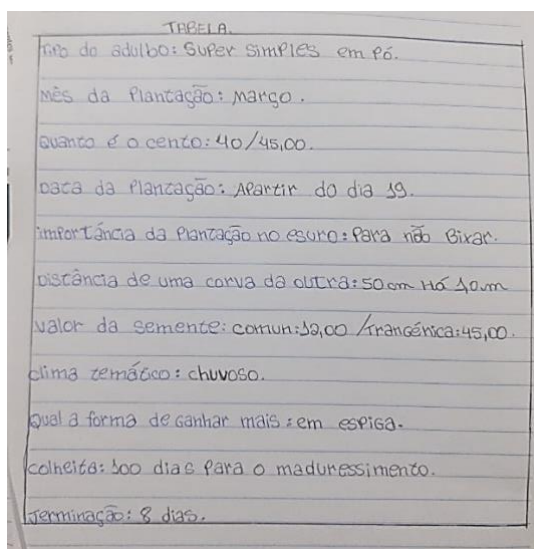 TABELA.
Tipo do adulbo: Super simples em pó.
mês da Plantação: março.
Quanto é o cento: 40/45,00.
Data da Plantação: Apartir do dia 19.
importância da Plantação no esuro: Para não Bixar.
Distância de uma corva da outra: 50 cm Há 10 m
valor da semente: comun: 12,00 / trangênica: 45,00.
clima temático: chuvoso.
Qual a forma de ganhar mais: em espiga.
colheita: 100 dias Para o maduressimento.
Jerminação: 8 dias.